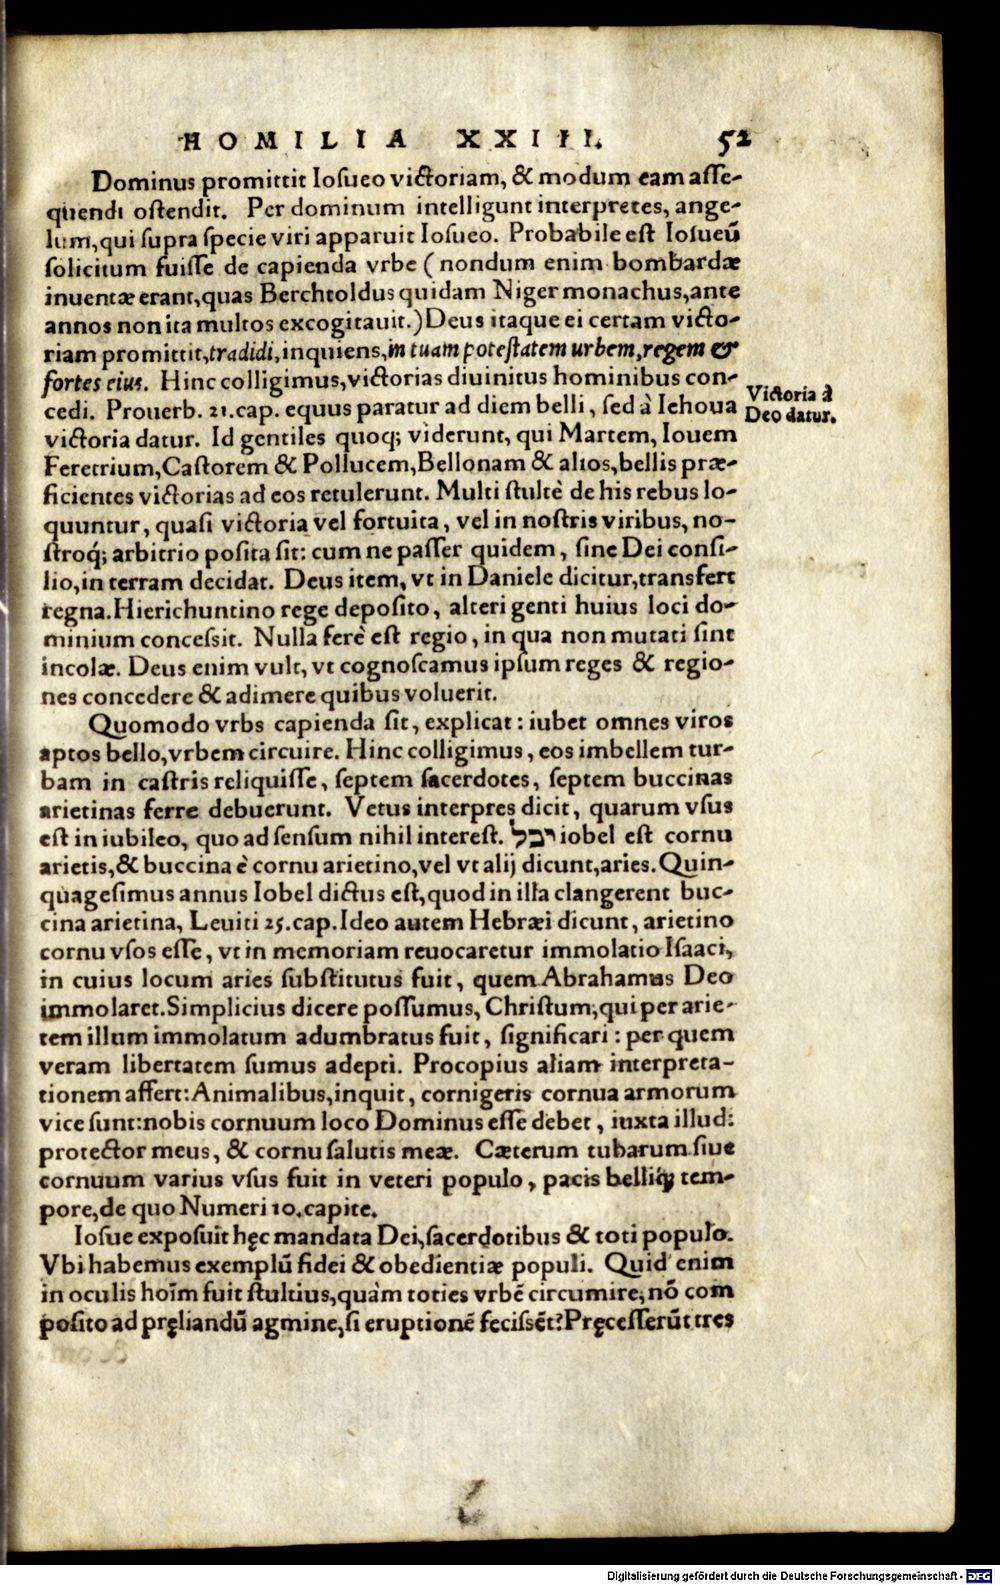 HOMILIA XXIII. 52
Dominus promittit Iosueo victoriam, & modum eam asse-
quendi ostendit. Per dominum intelligunt interpretes, ange-
lum, qui supra specie viri apparuit Iosueo. Probabile est Iosueū
solicitum fuisse de capienda vrbe (nondum enim bombardæ
inuentæ erant, quas Berchtoldus quidam Niger monachus, ante
annos non ita multos excogitauit.) Deus itaque ei certam victo-
riam promittit, tradidi, inquiens, in tuam potestatem urbem, regem &
fortes eius. Hinc colligimus, victorias diuinitus hominibus con-
cedi. Prouerb. 21. cap. equus paratur ad diem belli, sed à Iehoua
Victoria à
Deo datur.
victoria datur. Id gentiles quoq; viderunt, qui Martem, Iouem
Feretrium, Castorem & Pollucem, Bellonam & alios, bellis præ-
ficientes victorias ad eos retulerunt. Multi stultè de his rebus lo-
quuntur, quasi victoria vel fortuita, vel in nostris viribus, no-
stroq́; arbitrio posita sit: cum ne passer quidem, sine Dei consi-
lio, in terram decidat. Deus item, vt in Daniele dicitur, transfert
regna. Hierichuntino rege deposito, alteri genti huius loci do-
minium concessit. Nulla ferè est regio, in qua non mutati sint
incolæ. Deus enim vult, vt cognoscamus ipsum reges & regio-
nes concedere & adimere quibus voluerit.
Quomodo vrbs capienda sit, explicat: iubet omnes viros
aptos bello, vrbem circuire. Hinc colligimus, eos imbellem tur-
bam in castris reliquisse, septem sacerdotes, septem buccinas
arietinas ferre debuerunt. Vetus interpres dicit, quarum vsus
est in iubileo, quo ad sensum nihil interest. יבל iobel est cornu
arietis, & buccina è cornu arietino, vel vt alij dicunt, aries. Quin-
quagesimus annus Iobel dictus est, quod in illa clangerent buc-
cina arietina, Leuiti 25. cap. Ideo autem Hebræi dicunt, arietino
cornu vsos esse, vt in memoriam reuocaretur immolatio Isaaci,
in cuius locum aries substitutus fuit, quem Abrahamus Deo
immolaret. Simplicius dicere possumus, Christum, qui per arie-
tem illum immolatum adumbratus fuit, significari: per quem
veram libertatem sumus adepti. Procopius aliam interpreta-
tionem affert: Animalibus, inquit, cornigeris cornua armorum
vice sunt: nobis cornuum loco Dominus esse debet, iuxta illud:
protector meus, & cornu salutis meæ. Cæterum tubarum siue
cornuum varius vsus fuit in veteri populo, pacis belliq́; tem-
pore, de quo Numeri 10. capite.
Iosue exposuit hęc mandata Dei, sacerdotibus & toti populo.
Vbi habemus exemplū fidei & obedientiæ populi. Quid enim
in oculis hoīm fuit stultius, quàm toties vrbē circumire, nō com
posito ad pręliandū agmine, si eruptionē fecissēt? Pręcesserūt tres
Digitalisierung gefördert durch die Deutsche Forschungsgemeinschaft - DFG